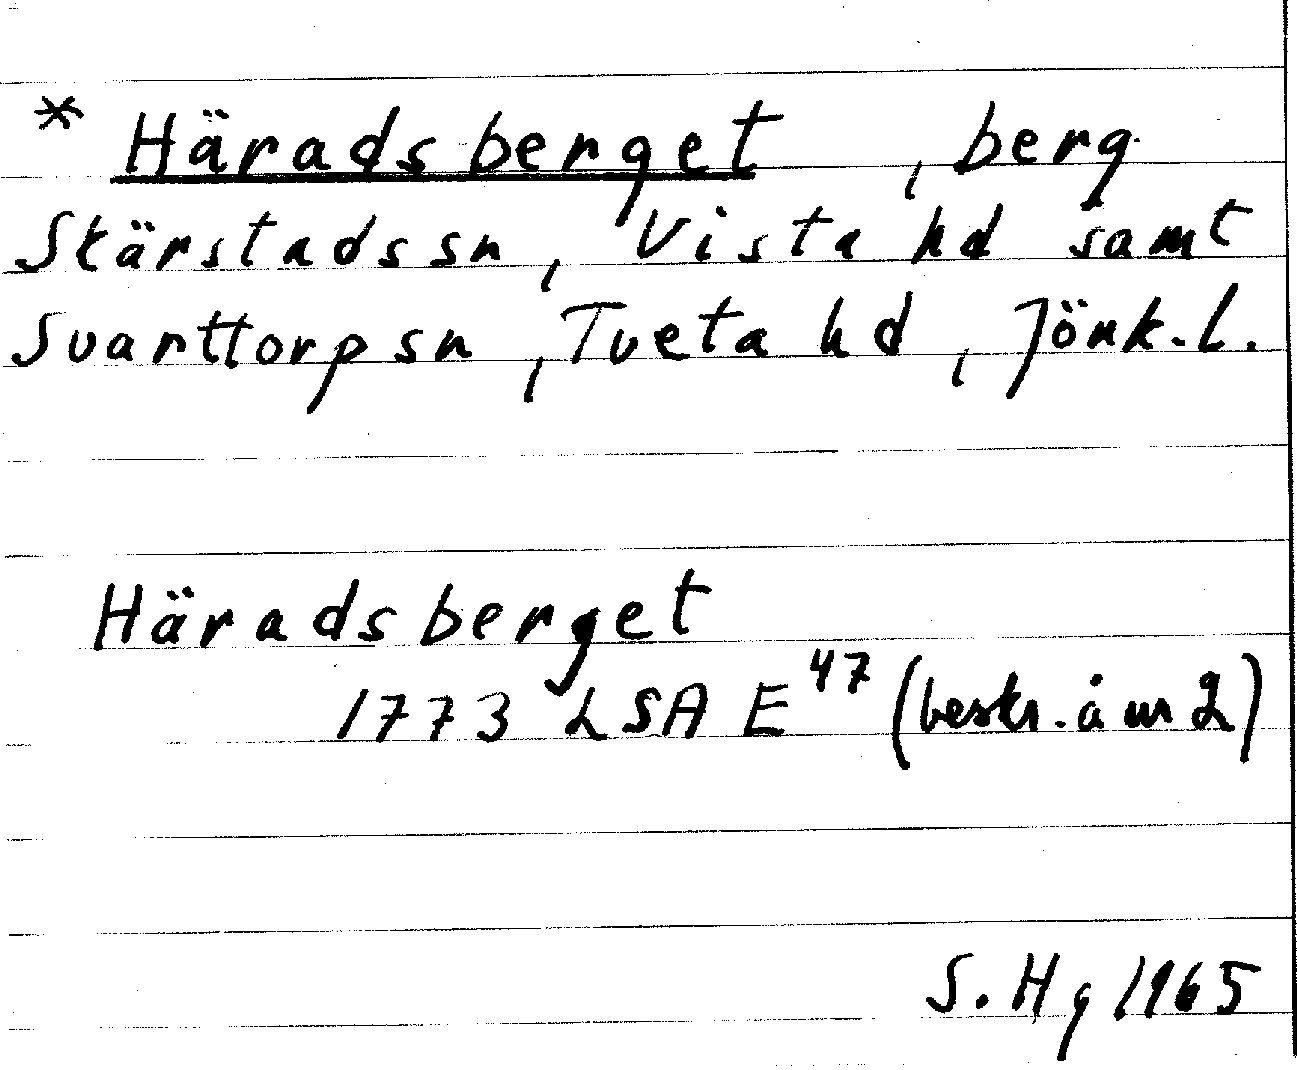 * Häradsberget, berg
Skärstads sn, Vista hd samt
Svarttorp sn, Tveta hd, Jönk.l.
Häradsberget
1773 LSA E47 (beskr. å nr 2)
S. Hg 1965